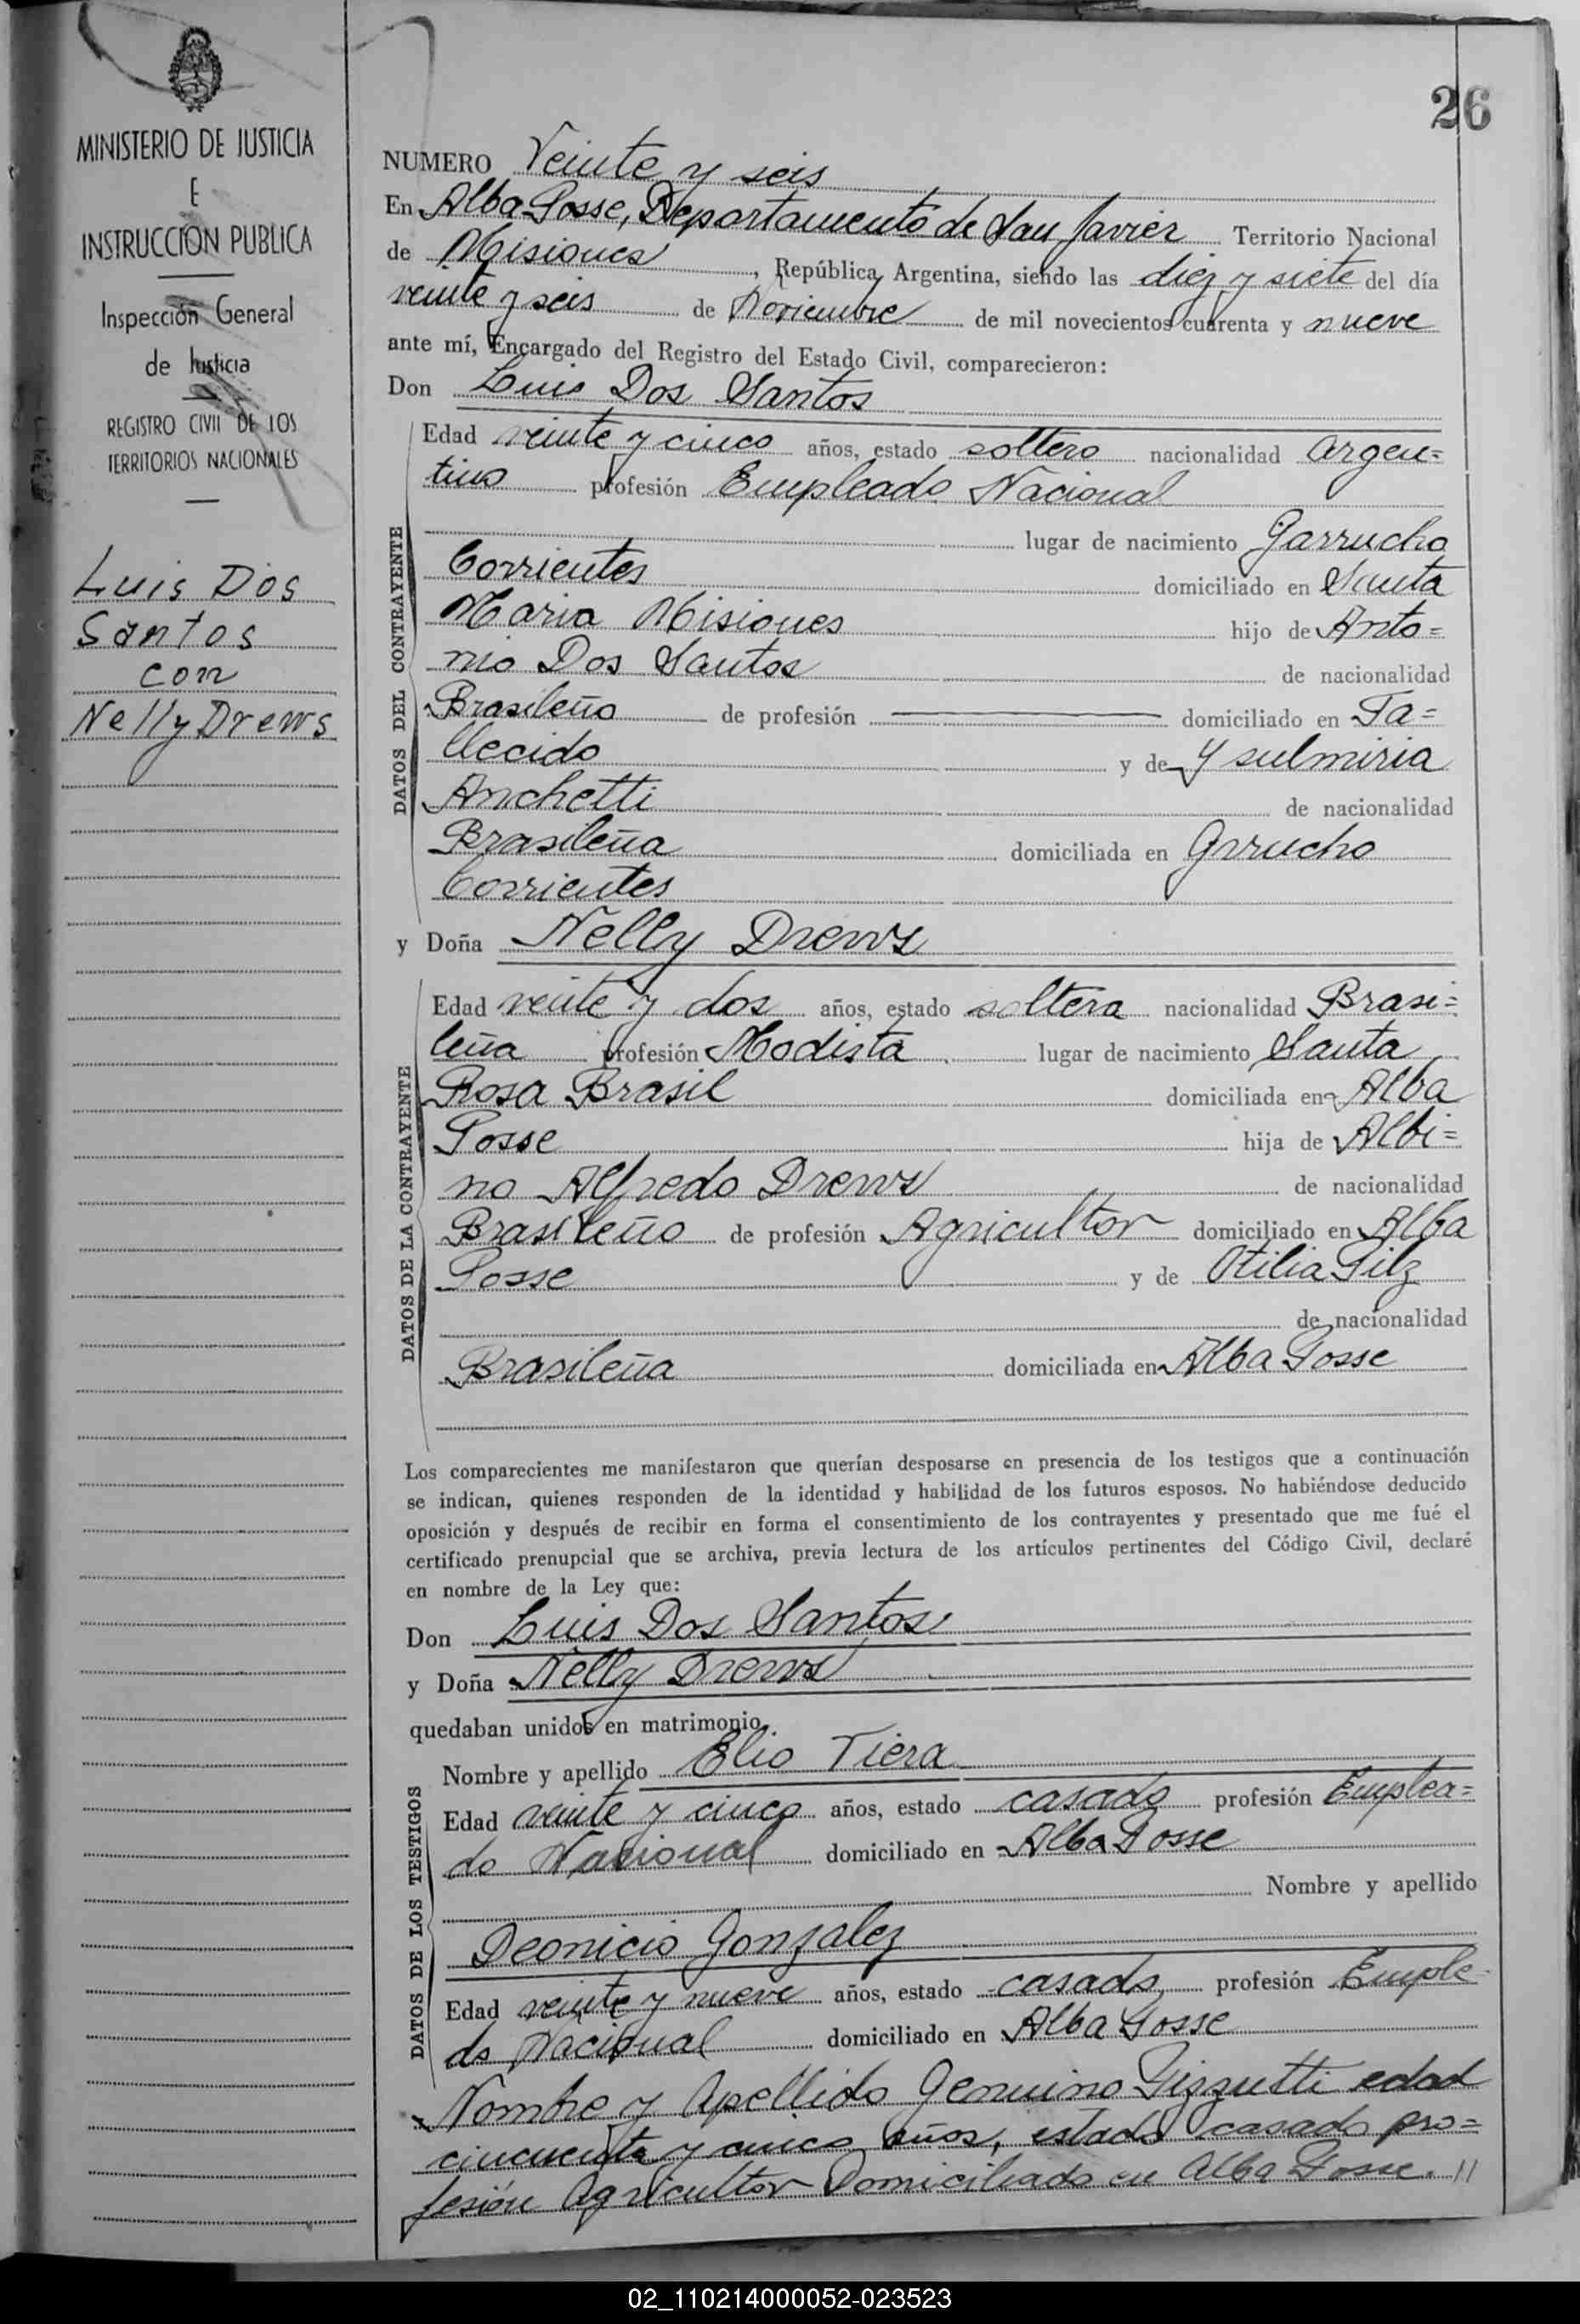 MINISTERIO DE JUSTICIA
E
INSTRUCCION PUBLICA
Inspección General
de Justicia
REGISTRO CIVIL DE LOS
TERRITORIOS NACIONALES
Luis Dos
Santos
con
Nelly Drews
26
NUMERO Veinte y seis
En Alba Posse, Departamento de San Javier Territorio Nacional
de Misiones, República Argentina, siendo las diez y siete del día
veinte y seis de Noviembre de mil novecientos cuarenta y nueve
ante mí, Encargado del Registro del Estado Civil, comparecieron:
Don Luis Dos Santos
DATOS DEL CONTRAYENTE
Edad veinte y cinco años, estado soltero nacionalidad argen=
tino profesión Empleado Nacional
lugar de nacimiento Garrucho
Corrientes domiciliado en Santa
Maria Misiones hijo de Anto=
nio Dos Santos de nacionalidad
Brasileño de profesión ——— domiciliado en Fa=
llecido y de Ysulmiria
Anchetti de nacionalidad
Brasileña domiciliada en Grrucho
Corrientes
y Doña Nelly Drews
DATOS DE LA CONTRAYENTE
Edad veinte y dos años, estado soltera nacionalidad Brasi=
leña profesión Modista lugar de nacimiento Santa
Rosa Brasil domiciliada en Alba
Posse hija de Albi=
no Alfredo Drews de nacionalidad
Brasileño de profesión Agricultor domiciliado en Alba
Posse y de Otilia Pilz
de nacionalidad
Brasileña domiciliada en Alba Posse
Los comparecientes me manifestaron que querían desposarse en presencia de los testigos que a continuación
se indican, quienes responden de la identidad y habilidad de los futuros esposos. No habiéndose deducido
oposición y después de recibir en forma el consentimiento de los contrayentes y presentado que me fué el
certificado prenupcial que se archiva, previa lectura de los artículos pertinentes del Código Civil, declaré
en nombre de la Ley que:
Don Luis Dos Santos
y Doña Nelly Drews
quedaban unidos en matrimonio.
DATOS DE LOS TESTIGOS
Nombre y apellido Elio Tiera
Edad veinte y cinco años, estado casado profesión Emplea=
do Nacional domiciliado en Alba Posse
Nombre y apellido
Deonicio Gonzalez
Edad veinte y nueve años, estado casado, profesión Emple-
do Nacional domiciliado en Alba Posse
Nombre y Apellido Genuino Pizzutti edad
cincuenta y cinco años, estado casado pro=
fesión Agricultor Domiciliado en Alba Posse. //
02_110214000052-023523